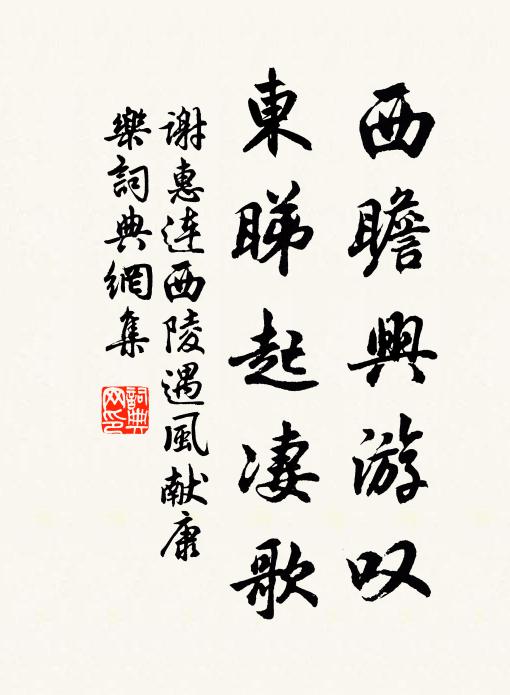 西瞻興游叹
東睇起凄歌
谢惠连西陵遇風献康
樂詞典網集
詞典网印